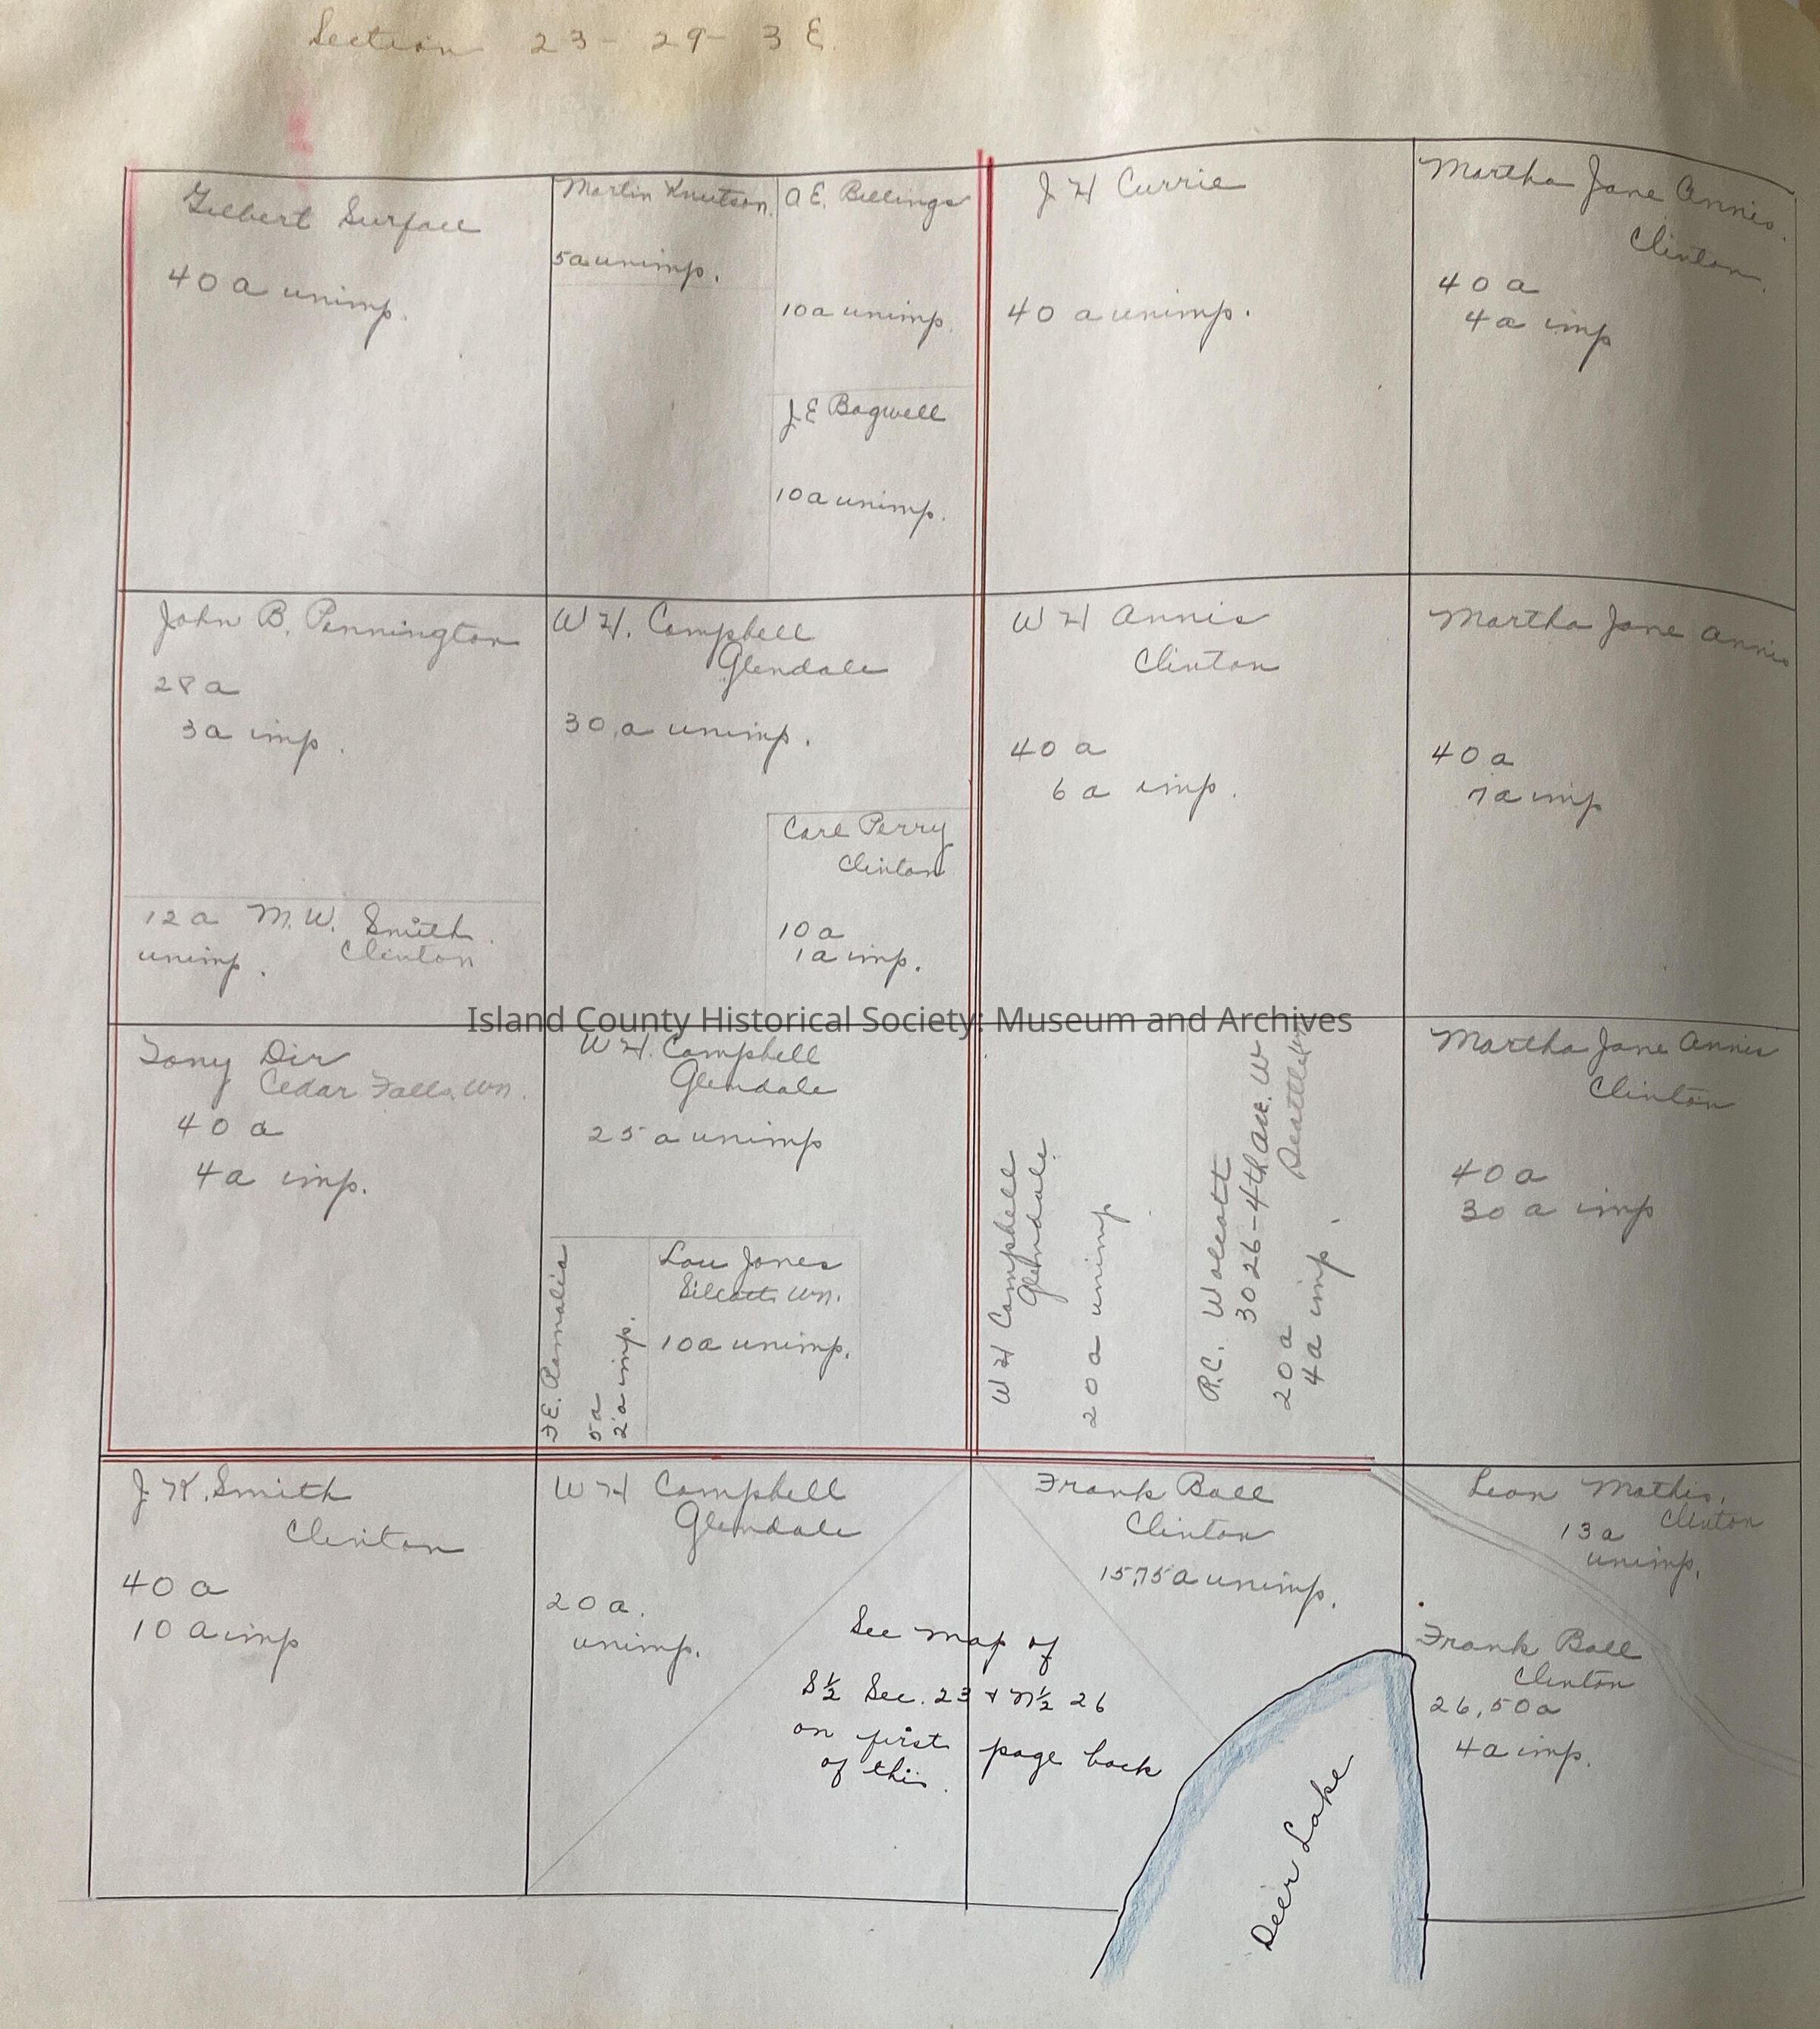 Section 23-29-3 E.
Gilbert Surface
40 a unimp.
Martin Knutson.
5a unimp.
A E. Billings
10a unimp.
J E Bagwell
10a unimp.
J H Currie
40 a unimp.
Martha Jane Annis.
Clinton.
40 a
4a imp
John B. Pennington
28 a
3a imp.
12a M.W. Smith.
unimp. Clinton
W H. Campbell
Glendale
30 a unimp.
Carl Perry
Clinton
10 a
1a imp.
W H Annis
Clinton
40 a
6 a imp.
Martha Jane Annis
40 a
7a imp
Island County Historical Society: Museum and Archives
Tony Dir
Cedar Falls, Wn.
40 a
4a imp.
W H. Campbell
Glendale
25 a unimp
F E.
5a
2a imp.
Lou Jones
Silcott Wn.
10a unimp.
W H Campbell
Glendale.
20 a unimp
R.C. Wolcott
3026-4th Ave. W
Seattle
20 a
4a imp.
Martha Jane Annis
Clinton
40 a
30 a imp
J. K. Smith
Clinton
40 a
10 a imp
W H Campbell
Glendale
20 a.
unimp.
Frank Ball
Clinton
15.75a unimp.
See map of
S½ Sec. 23 + N½ 26
on first page back
of this.
Deer Lake
Leon Mathis,
Clinton
13a
unimp.
Frank Ball
Clinton
26.50a
4a imp.